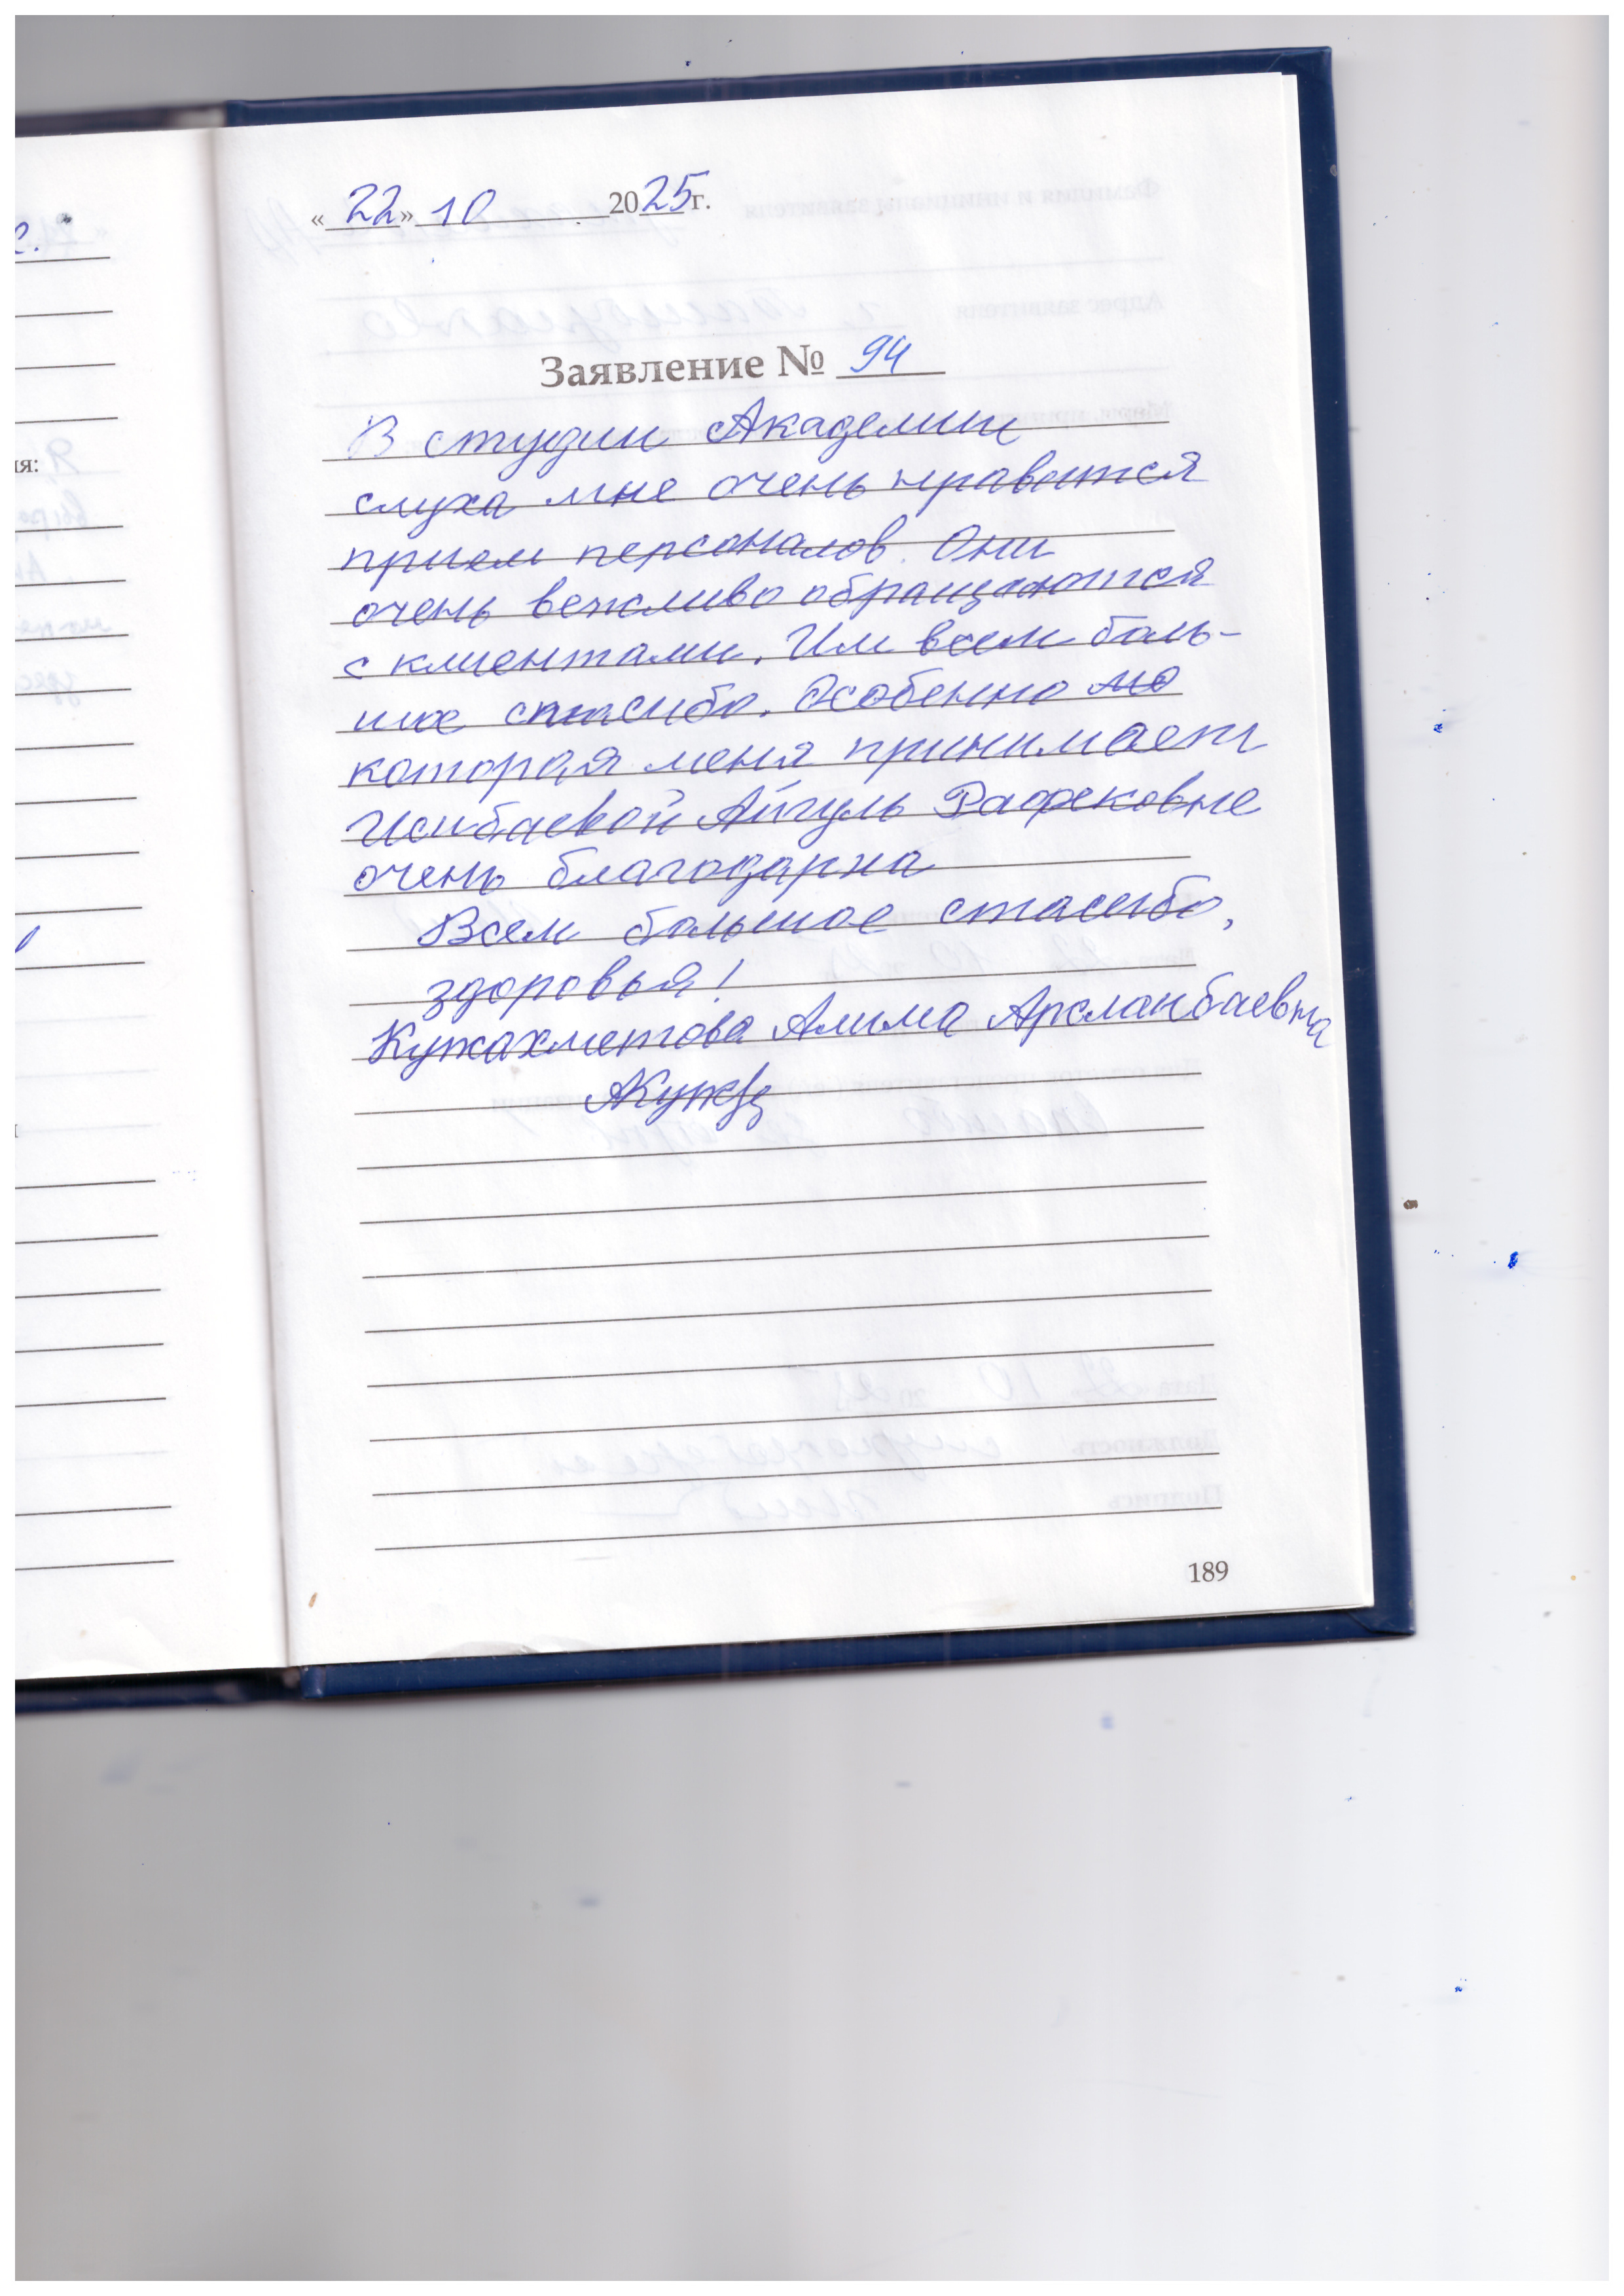 «22» 10 2025 г.
Заявление № 94
В студии Академии
слуха мне очень нравится
прием персоналов. Они
очень вежливо обращаются
с клиентами. Им всем боль-
шое спасибо. Особенно
которая меня принимает
Исибаевой Айгуль Рафековне
очень благодарна
Всем большое спасибо,
здоровья!
Кужахметова Алима Арсланбаевна
АКуж
ия:
189